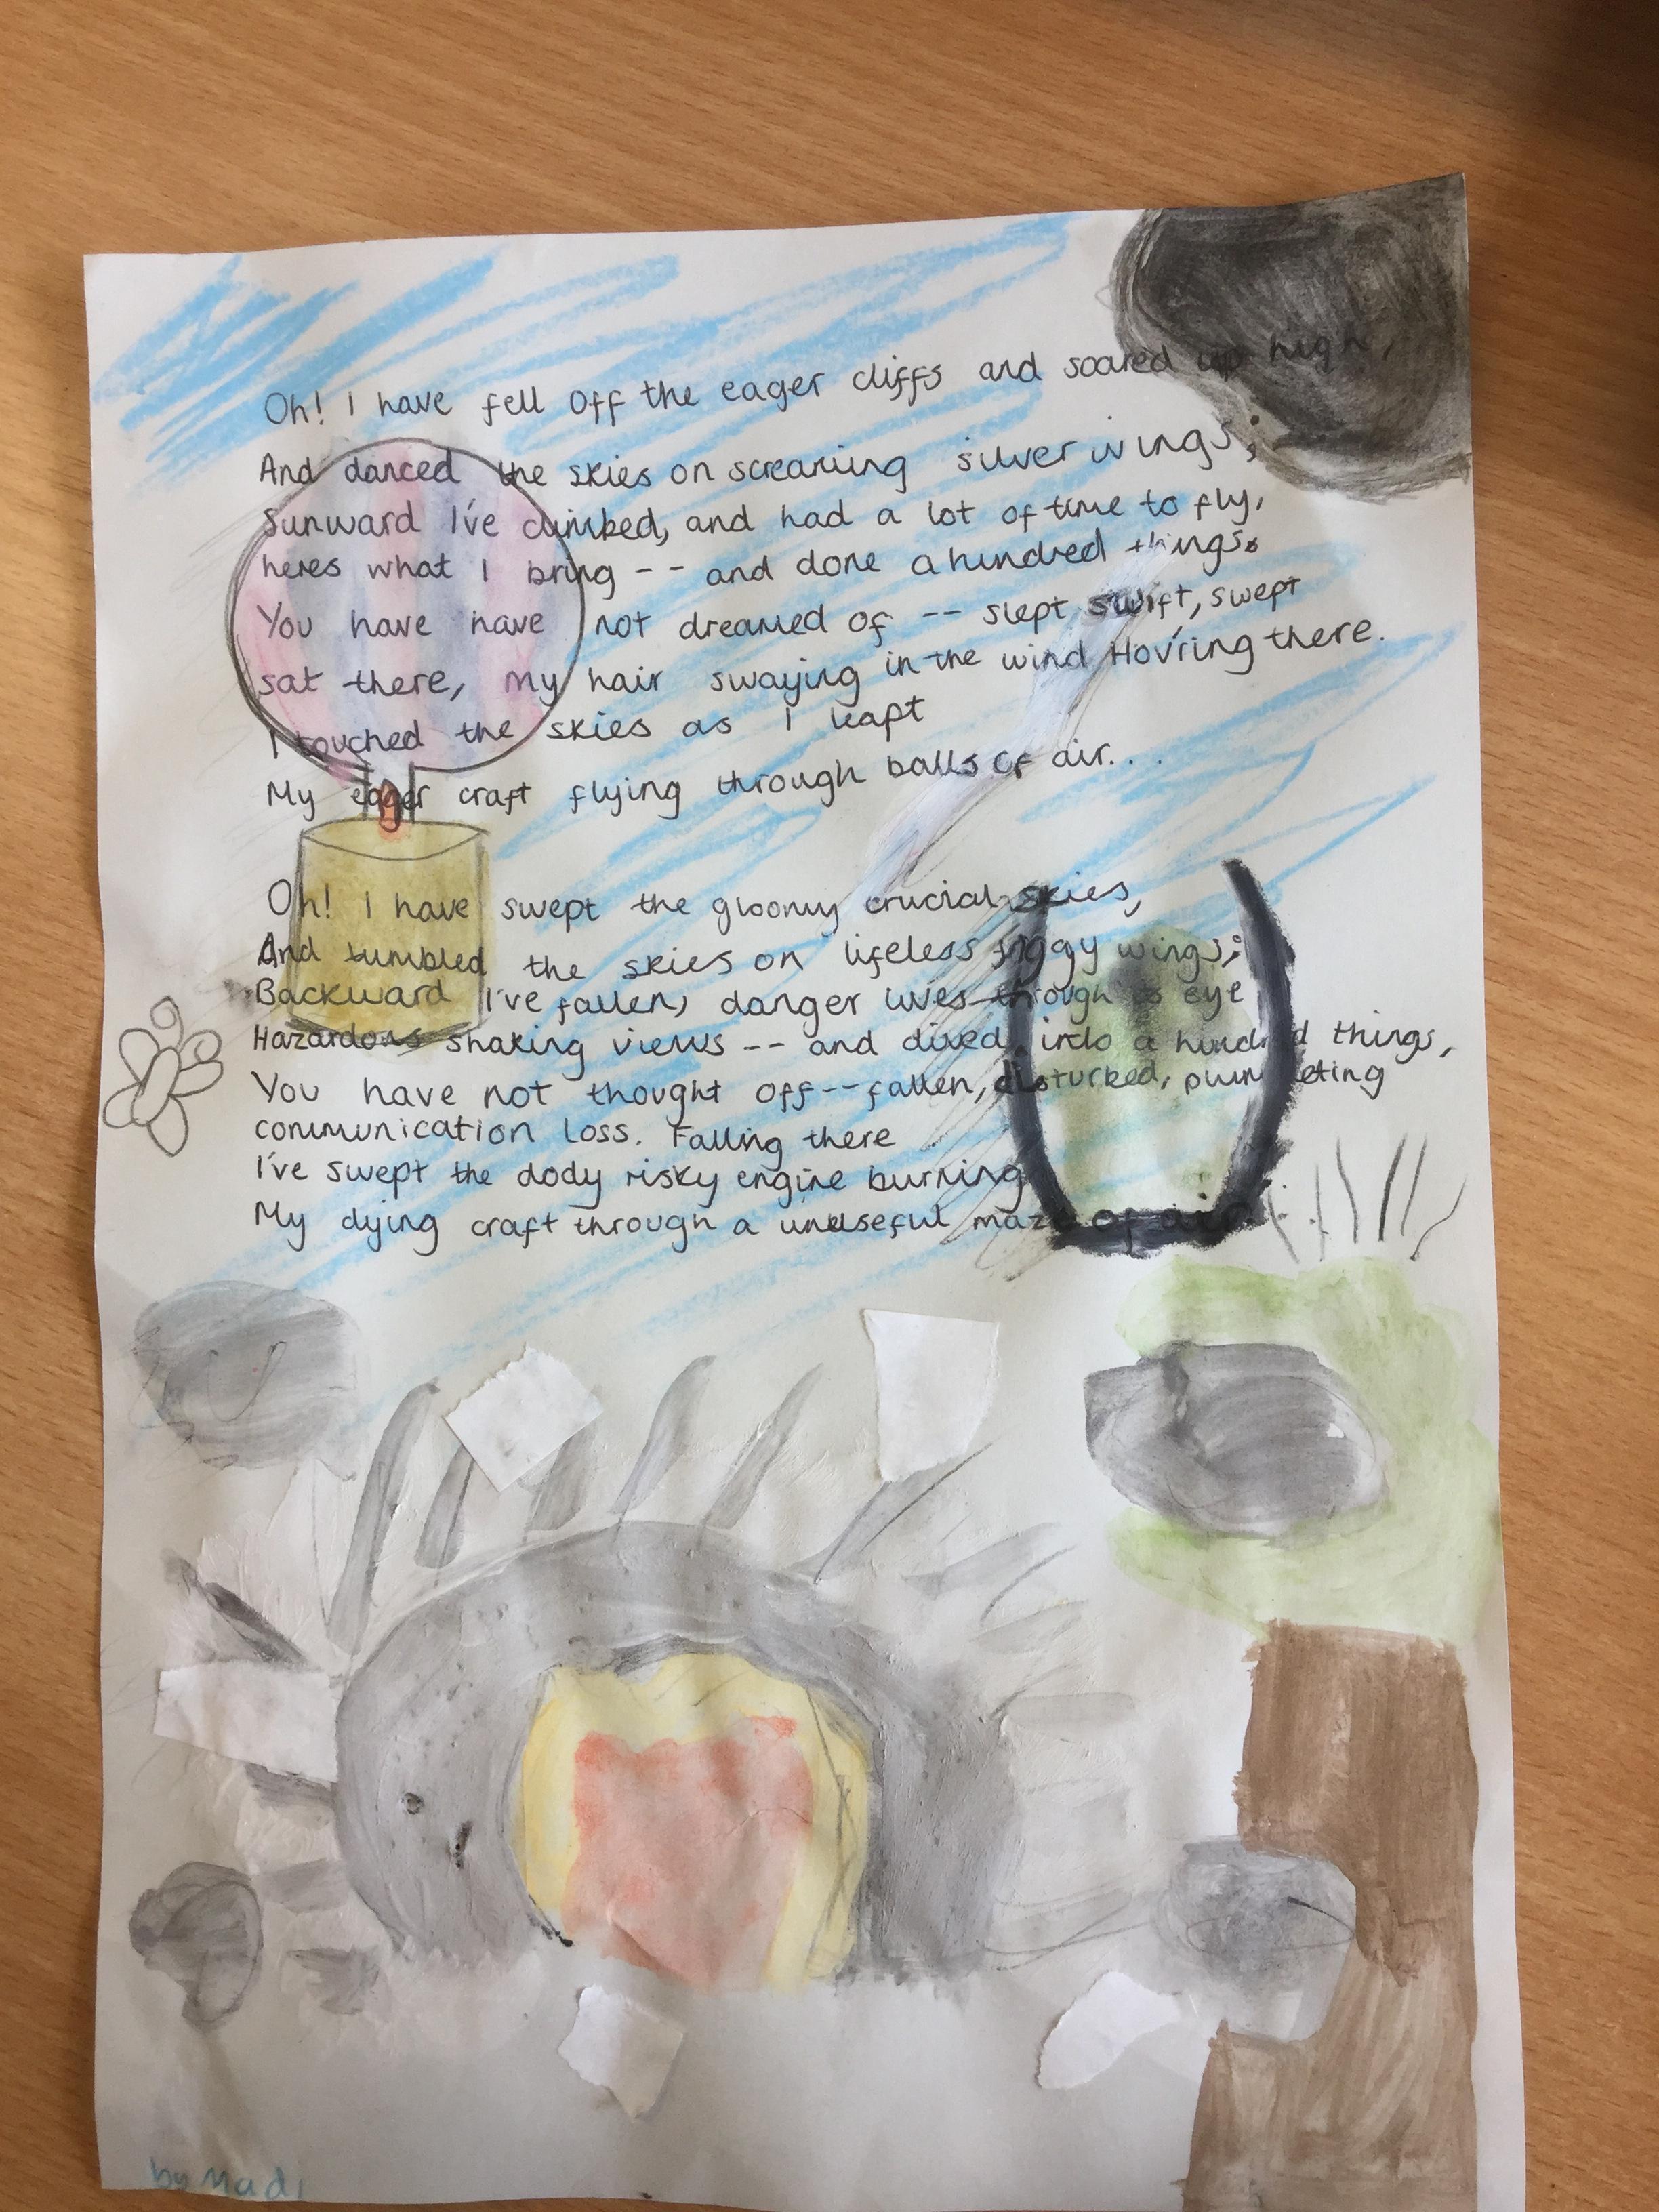 Oh! I have fell off the eager cliffs and soared up high,
And danced the skies on screaming silver wings;
Sunward I've climbed, and had a lot of time to fly,
heres what I bring -- and done a hundred things
You have have not dreamed of -- slept swift, swept
sat there, My hair swaying in the wind Hov'ring there.
I touched the skies as I leapt
My eager craft flying through balls of air...
Oh! I have swept the gloomy crucial skies,
And tumbled the skies on lifeless figgy wings;
Backward I've fallen, danger lives through eye
Hazardous shaking views -- and dived into a hundred things,
You have not thought off -- fallen, disturbed, plummeting
communication loss. Falling there
I've swept the dody risky engine burning
My dying craft through a unuseful maze of air
by Madi